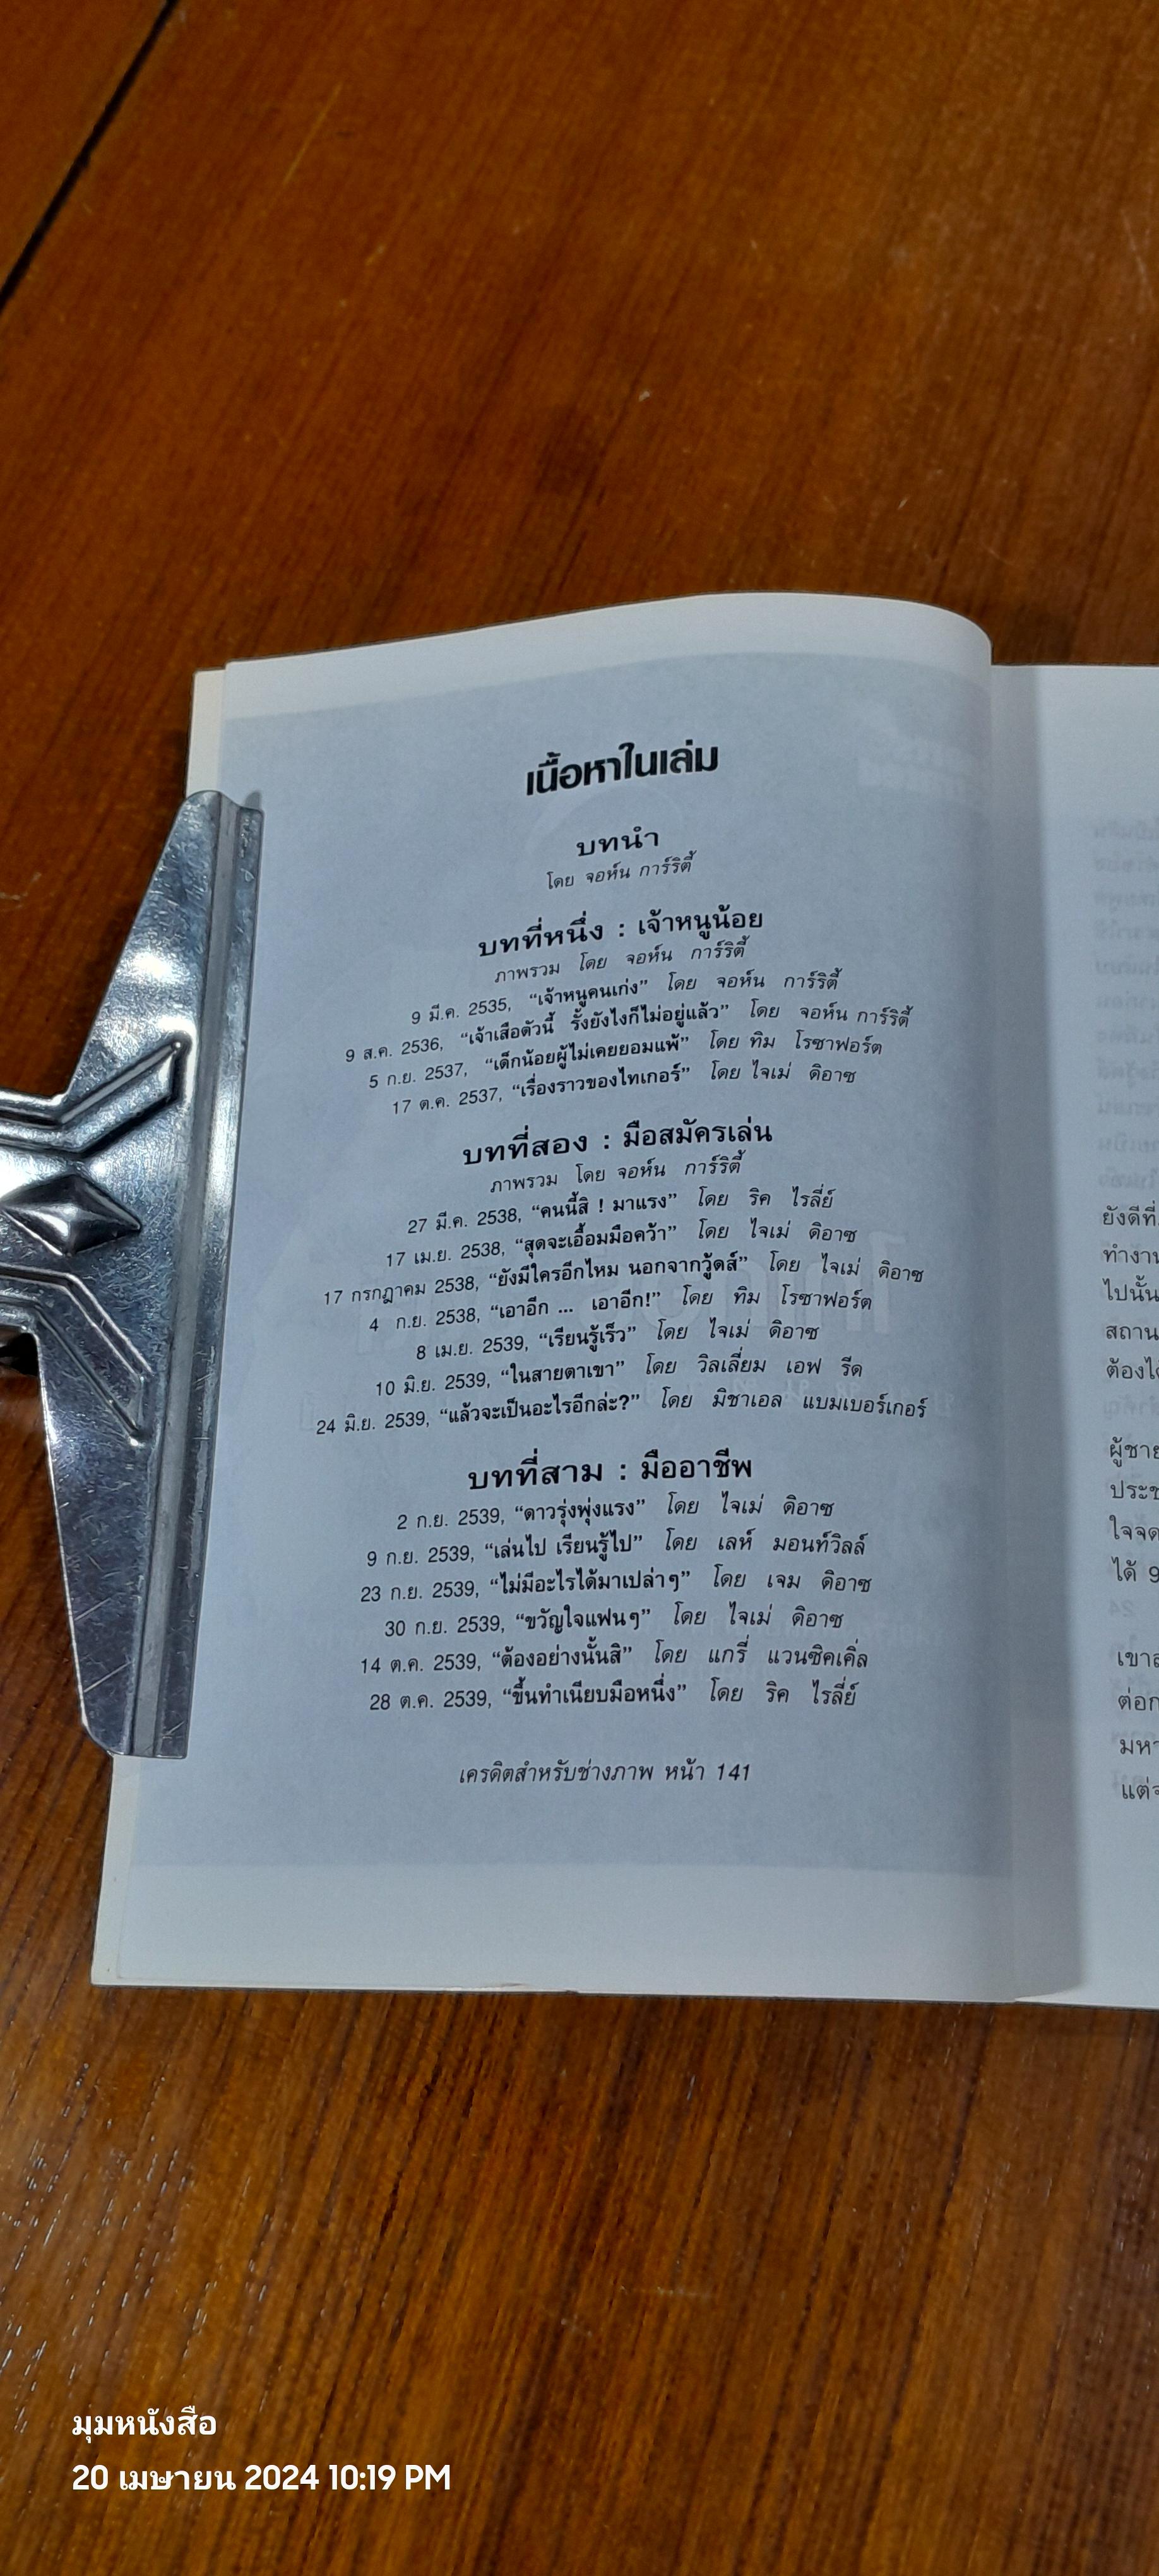 เนื้อหาในเล่ม
บทนำ
โดย จอห์น การ์ริตี้
บทที่หนึ่ง : เจ้าหนูน้อย
ภาพรวม โดย จอห์น การ์ริตี้
9 มี.ค. 2535, “เจ้าหนูคนเก่ง” โดย จอห์น การ์ริตี้
9 ส.ค. 2536, “เจ้าเสือตัวนี้ รั้งยังไงก็ไม่อยู่แล้ว” โดย จอห์น การ์ริตี้
5 ก.ย. 2537, “เด็กน้อยผู้ไม่เคยยอมแพ้” โดย ทิม โรซาฟอร์ต
17 ต.ค. 2537, “เรื่องราวของไทเกอร์” โดย ไจเม่ ดิอาซ
บทที่สอง : มือสมัครเล่น
ภาพรวม โดย จอห์น การ์ริตี้
27 มี.ค. 2538, “คนนี้สิ ! มาแรง” โดย ริค ไรลี่ย์
17 เม.ย. 2538, “สุดจะเอื้อมมือคว้า” โดย ไจเม่ ดิอาซ
17 กรกฎาคม 2538, “ยังมีใครอีกไหม นอกจากวู้ดส์” โดย ไจเม่ ดิอาซ
4 ก.ย. 2538, “เอาอีก ... เอาอีก!” โดย ทิม โรซาฟอร์ต
8 เม.ย. 2539, “เรียนรู้เร็ว” โดย ไจเม่ ดิอาซ
10 มิ.ย. 2539, “ในสายตาเขา” โดย วิลเลี่ยม เอฟ รีด
24 มิ.ย. 2539, “แล้วจะเป็นอะไรอีกล่ะ?” โดย มิชาเอล แบมเบอร์เกอร์
บทที่สาม : มืออาชีพ
2 ก.ย. 2539, “ดาวรุ่งพุ่งแรง” โดย ไจเม่ ดิอาซ
9 ก.ย. 2539, “เล่นไป เรียนรู้ไป” โดย เลห์ มอนท์วิลล์
23 ก.ย. 2539, “ไม่มีอะไรได้มาเปล่าๆ” โดย เจม ดิอาซ
30 ก.ย. 2539, “ขวัญใจแฟนๆ” โดย ไจเม่ ดิอาซ
14 ต.ค. 2539, “ต้องอย่างนั้นสิ” โดย แกรี่ แวนซิคเคิ่ล
28 ต.ค. 2539, “ขึ้นทำเนียบมือหนึ่ง” โดย ริค ไรลี่ย์
เครดิตสำหรับช่างภาพ หน้า 141
ยังดีที่
ทำงาน
ไปนั้น
สถาน
ต้องได้
ผู้ชาย
ประช
ใจจด
ได้ 9
เขาล
ต่อก
มหา
แต่จ
มุมหนังสือ
20 เมษายน 2024 10:19 PM